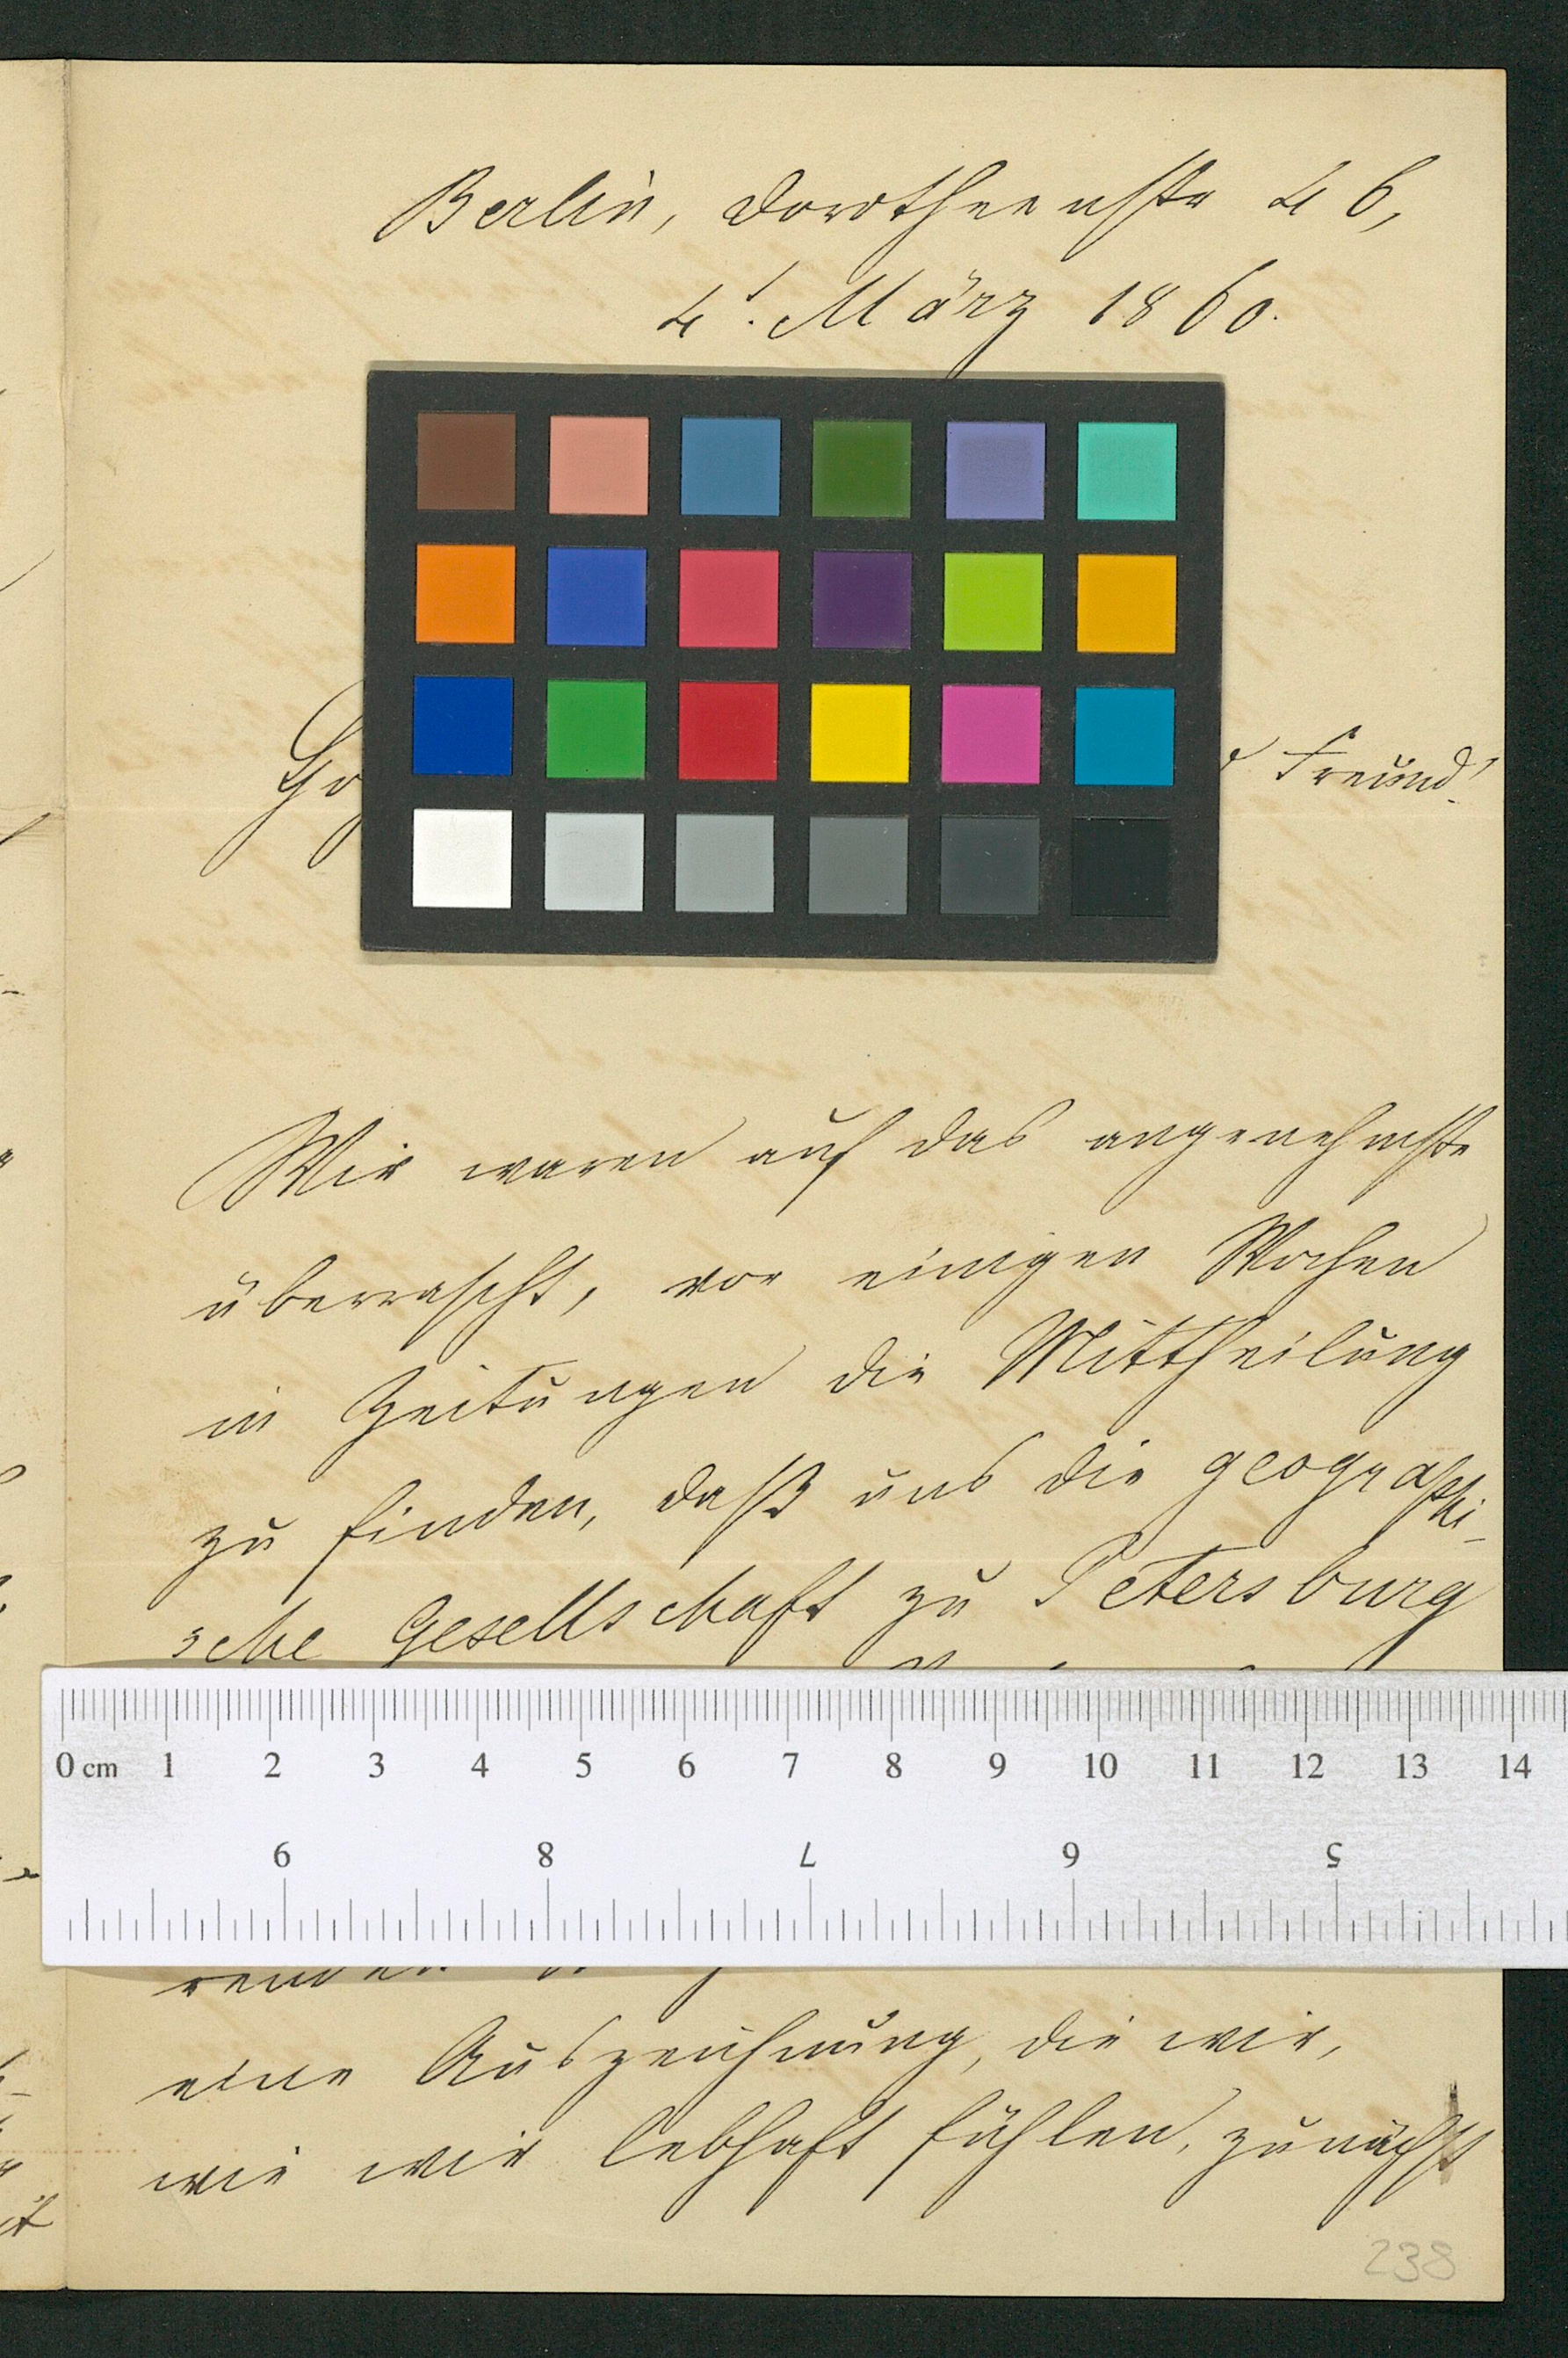 Berlin, Dorotheenstr 46,
4t. März 1860.
Freund!
Wir waren auf das angenehmste
überrascht, vor einigen Wochen
in Zeitungen die Mittheilung
zu finden, daß uns die geographi-
sche Gesellschaft zu Petersburg
0 cm 1 2 3 4 5 6 7 8 9 10 11 12 13 14
9 8 7 6 5
eine Auszeichnung, die wir,
wie wir lebhaft fühlen, zunächst
238